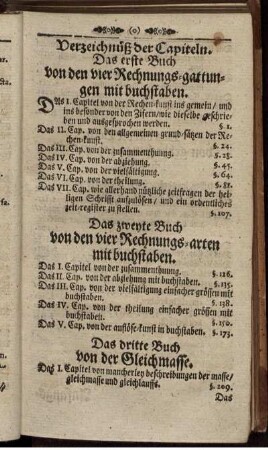 (o)
Verzeichnüß der Capiteln.
Das erste Buch
von den vier Rechnungs-gattun-
gen mit buchstaben.
Das I. Capitel von der Rechen-kunst ins gemein/ und
ins besonder von den Zifern/ wie dieselbe geschrie-
ben und außgesprochen werden. §. 1.
Das II. Cap. von den allgemeinen grund-sätzen der Re-
chen-kunst. §. 24.
Das III. Cap. von der zusammenthuung. §. 28.
Das IV. Cap. von der abziehung. §. 45.
Das V. Cap. von der vielfältigung. §. 64.
Das VI. Cap. von der theilung. §. 81.
Das VII. Cap. wie allerhand nützliche zeitfragen der hei-
ligen Schrifft aufzulösen/ und ein ordentliches
zeit-register zu stellen. §. 107.
Das zweyte Buch
von den vier Rechnungs-arten
mit buchstaben.
Das I. Capitel von der zusammenthuung. §. 126.
Das II. Cap. von der abziehung mit buchstaben. §. 135.
Das III. Cap. von der vielfältigung einfacher grössen mit
buchstaben. §. 138.
Das IV. Cap. von der theilung einfacher grössen mit
buchstaben. §. 150.
Das V. Cap. von der auflöse-kunst in buchstaben. §. 173.
Das dritte Buch
von der Gleichmasse.
Das I. Capitel von mancherley beschreibungen der masse/
gleichmasse und gleichlauffs. §. 209.
Das